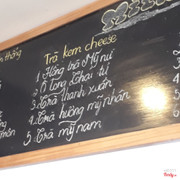 Trà kem cheese
1. Hồng trà Mỹ nữ
2. Ô long Thái tử
3. Trà thanh xuân
4. Trà hường mỹ nhân
5. Trà mỹ nam
thống
môn